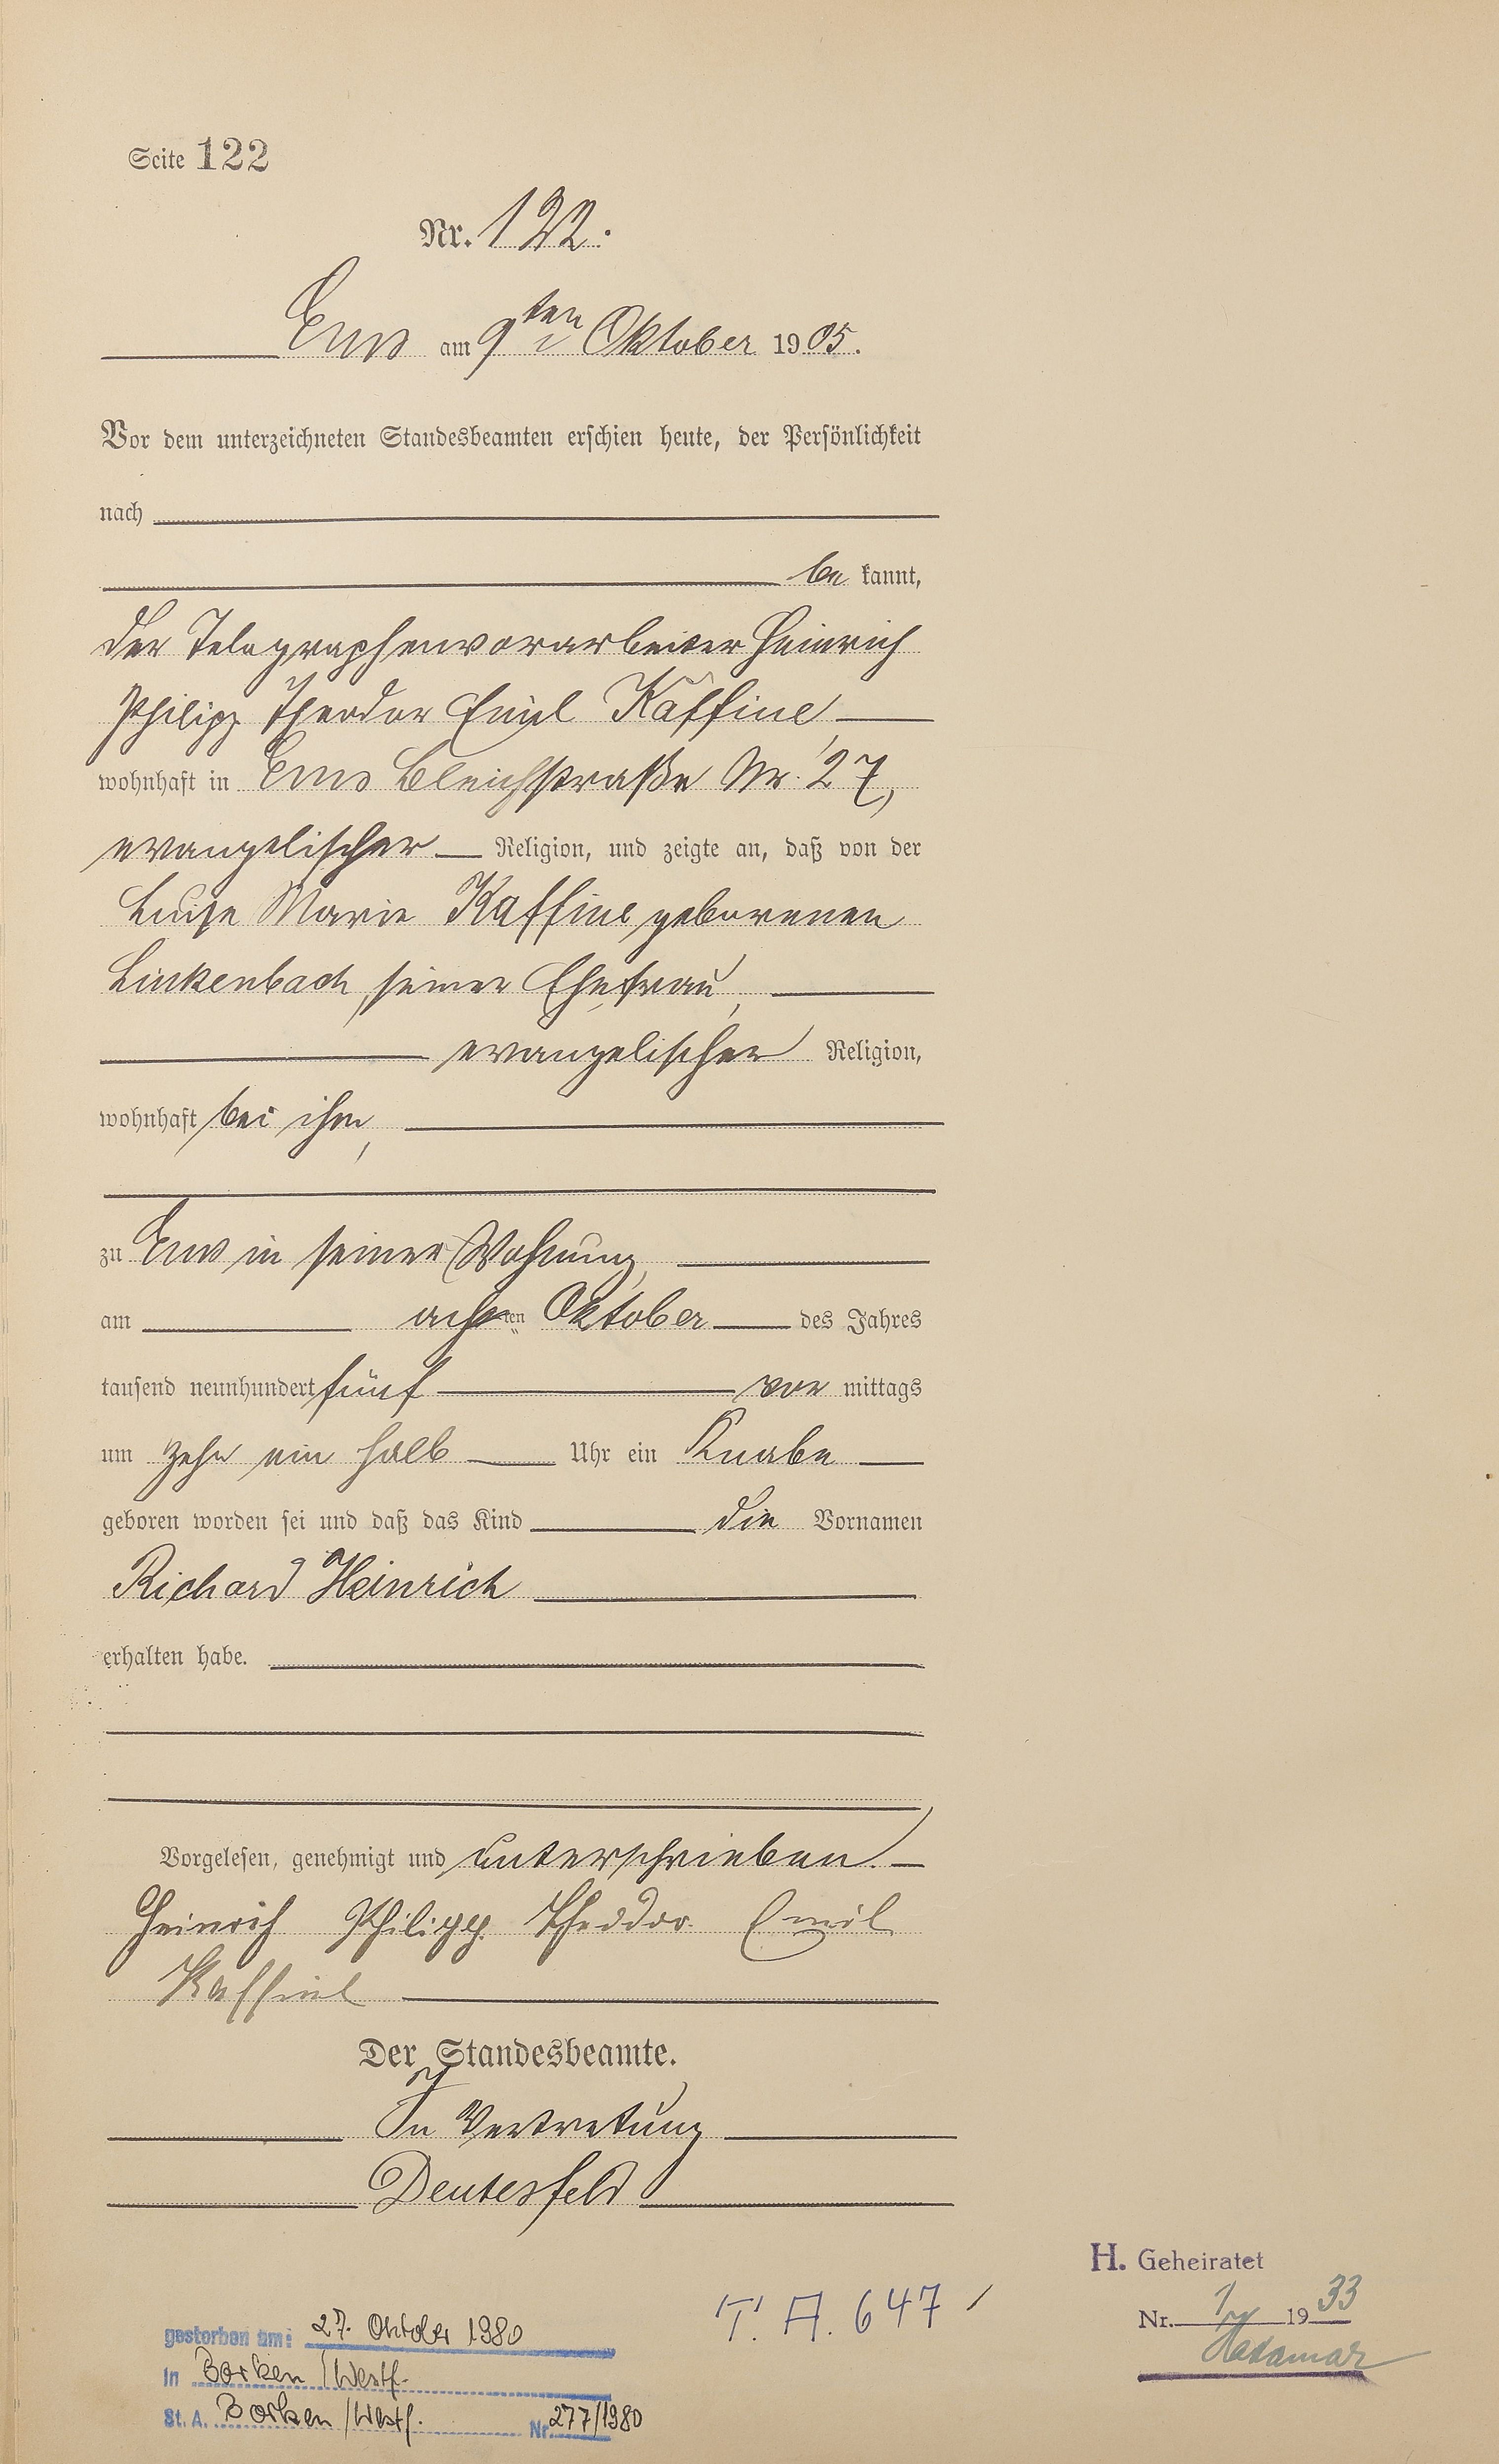 Seite 122
Nr. 122.
Ems am 9ten Oktober 1905.
Vor dem unterzeichneten Standesbeamten erschien heute, der Persönlichkeit
nach
be kannt,
der Telegraphenvorarbeiter Heinrich
Philipp Theodor Emil Kaffine,
wohnhaft in Ems Bleichstraße Nr. 27,
evangelischer Religion, und zeigte an, daß von der
Luise Marie Kaffine geborenen
Linkenbach, seiner Ehefrau,
evangelischer Religion,
wohnhaft bei ihm,
zu Ems in seiner Wohnung,
am achten Oktober des Jahres
tausend neunhundert fünf vor mittags
um zehn ein halb Uhr ein Knabe
geboren worden sei und daß das Kind die Vornamen
Richard Heinrich
erhalten habe.
Vorgelesen, genehmigt und unterschrieben.
Heinrich Philipp Theodor Emil
Kaffine
Der Standesbeamte.
In Vertretung
Deutesfeld
H. Geheiratet
Nr. 1 1933
Hadamar
T. A. 647
gestorben am: 27. Oktober 1980
in Borken/Westf.
St. A. Borken/Westf. Nr. 277/1980